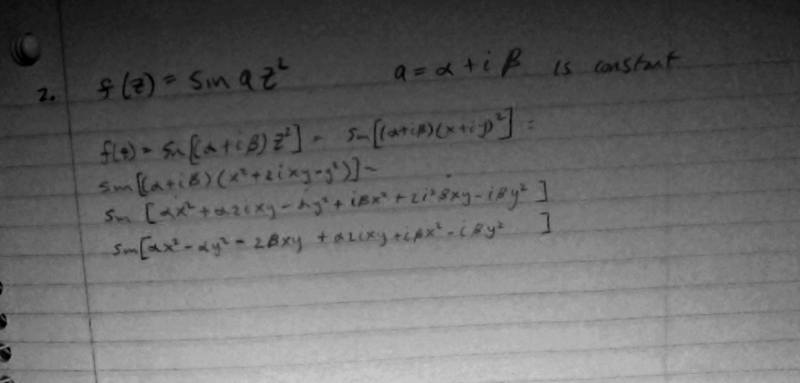 2. f(z) = sin a z² a = α + i β is constant
f(z) = sin[(α+iβ) z²] = sin[(α+iβ)(x+iy)²] =
sin[(α+iβ)(x²+2ixy-y²)] =
sin [αx² + α2ixy - αy² + iβx² + 2i²βxy - iβy²]
sin[αx² - αy² - 2βxy + α2ixy + iβx² - iβy² ]